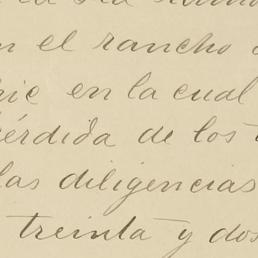 en el rancho
en la cual
pérdida de los
las diligencias
treinta y dos